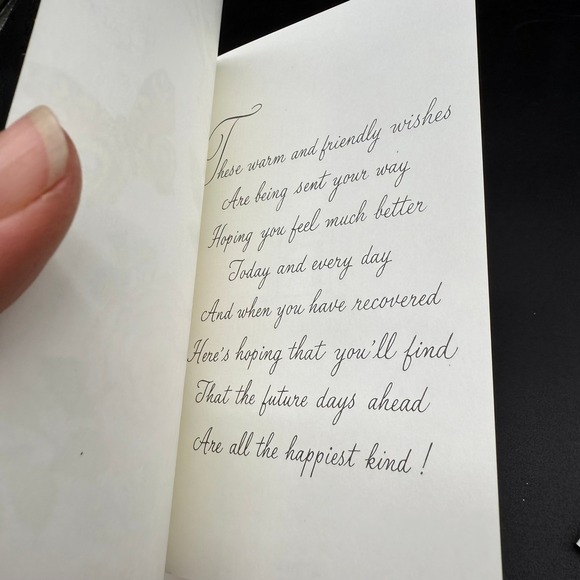 These warm and friendly wishes
Are being sent your way
Hoping you feel much better
Today and every day
And when you have recovered
Here's hoping that you'll find
That the future days ahead
Are all the happiest kind!